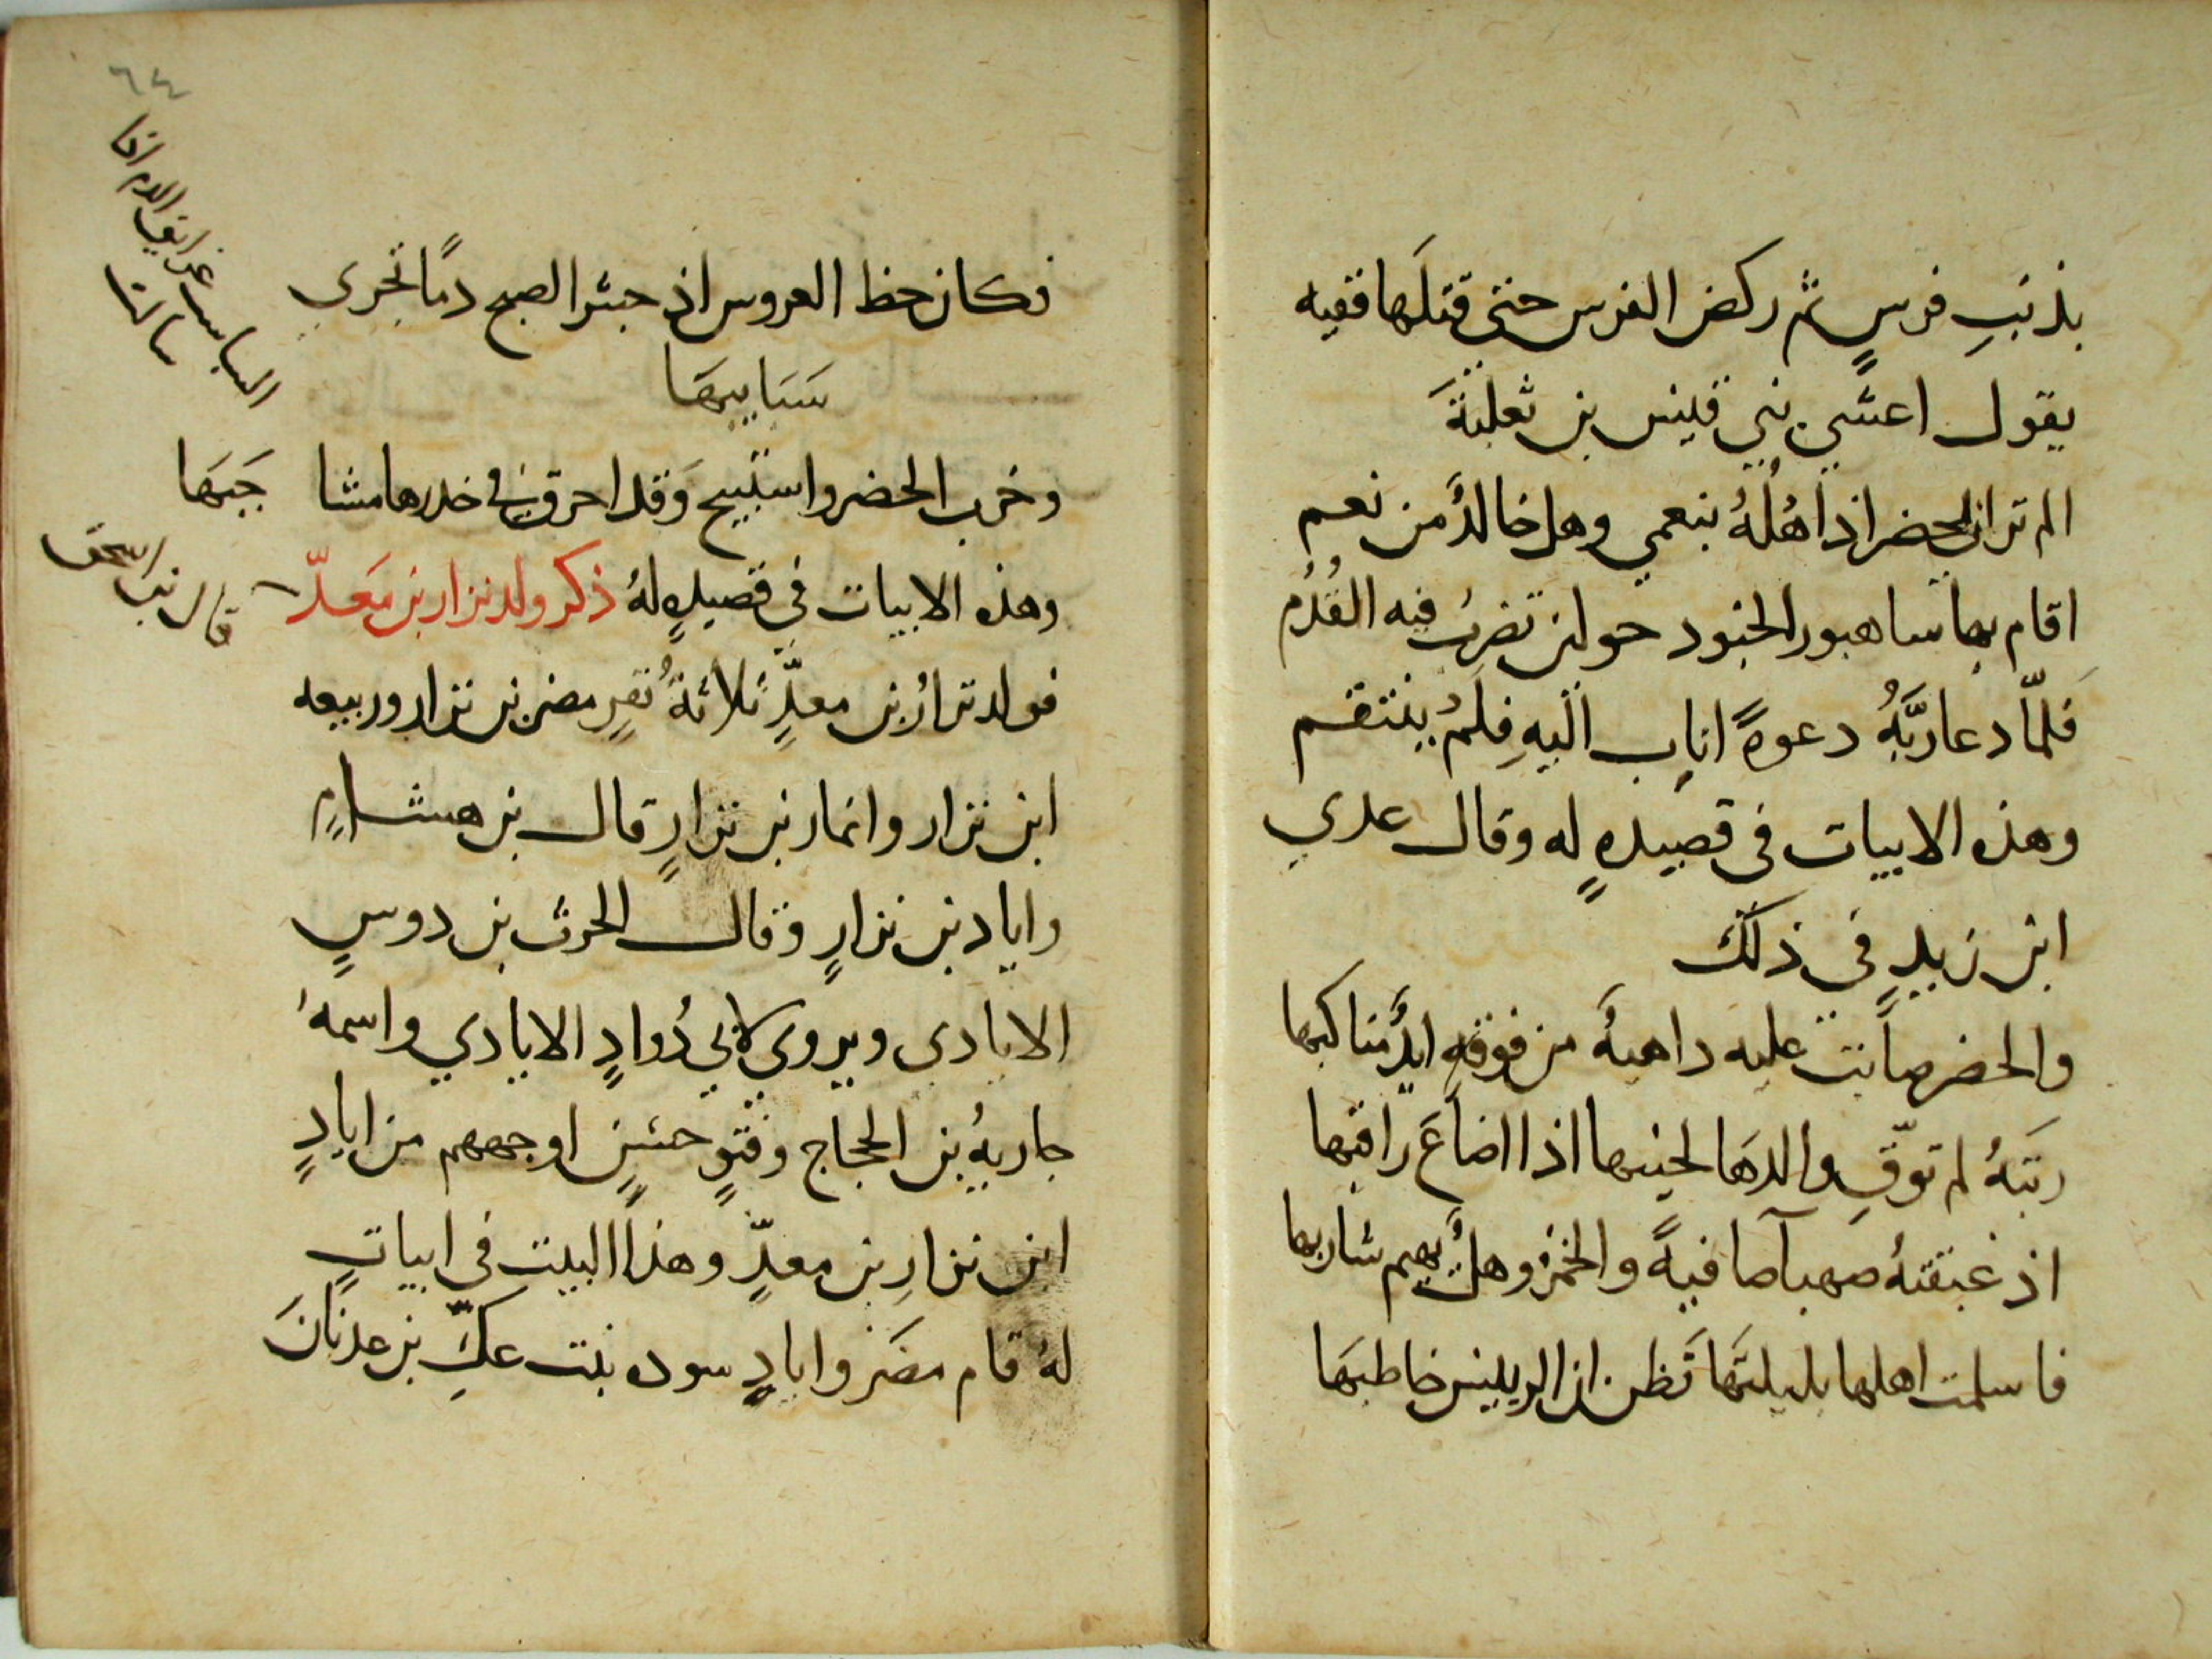 بذنبِ فرسٍ ثم ركض الفرس حتى قتلَها ففيه
يقول اعشي بني قيس بن ثعلبةَ
الم تر ان الحضر اذ اهُلُهُ بنعمي وهل خالدٌ من نعم
اقام بها ساهبور الجنود حولين تضرِبُ فيه القُدُم
فلمّا دعا ربَّهُ دعوةً اناب اليهِ فلمْ ينتقم
وهذه الابيات في قصيدهٍ له وقال عدي
ابن زيدٍ في ذلك
والحضر صابت عليه داهيةٌ من فوقهِ ايّدٌ مناكبها
ربَيّهُ لم توّقِ والدهَا لحينها اذا اضاعَ راقبها
اذ غبقتهُ صهبآ صافيةً والخمر وهلٌ يهيم شاربها
فاسلمت اهلها بليلتهَا تَظن ان الرييس خاطبهَا
٦٤
فكان حظ العروس اذ جشر الصبح دمًا تجري
سَبَايبهَا
وخرب الحضر واستبيح وَقد احرق في خدرها مشا
جَبهَا
وهذه الابيات في قصيدهٍ لهُ ذكر ولد نزار بن مَعدّ
قال بن اسحق
فولد نزارُ بن معدٍّ ثلاثةُ نفرٍ مضر بن نزار وربيعه
ابن نزار وانمار بن نزارٍ قال بن هشامٍ
واياد بن نزارٍ وقال الحرث بن دوسٍ
الايادي ويروي لابي دُوادٍ الايادي واسمهُ
جاريهُ بن الحجاج وفتوٍ حسنٍ اوجههم من ايادٍ
ابن نزارِ بن معدٍّ وهذا البيت في ابياتٍ
لهُ فام مضَر وايادٍ سوده بنت عكِّ بن عدنانَ